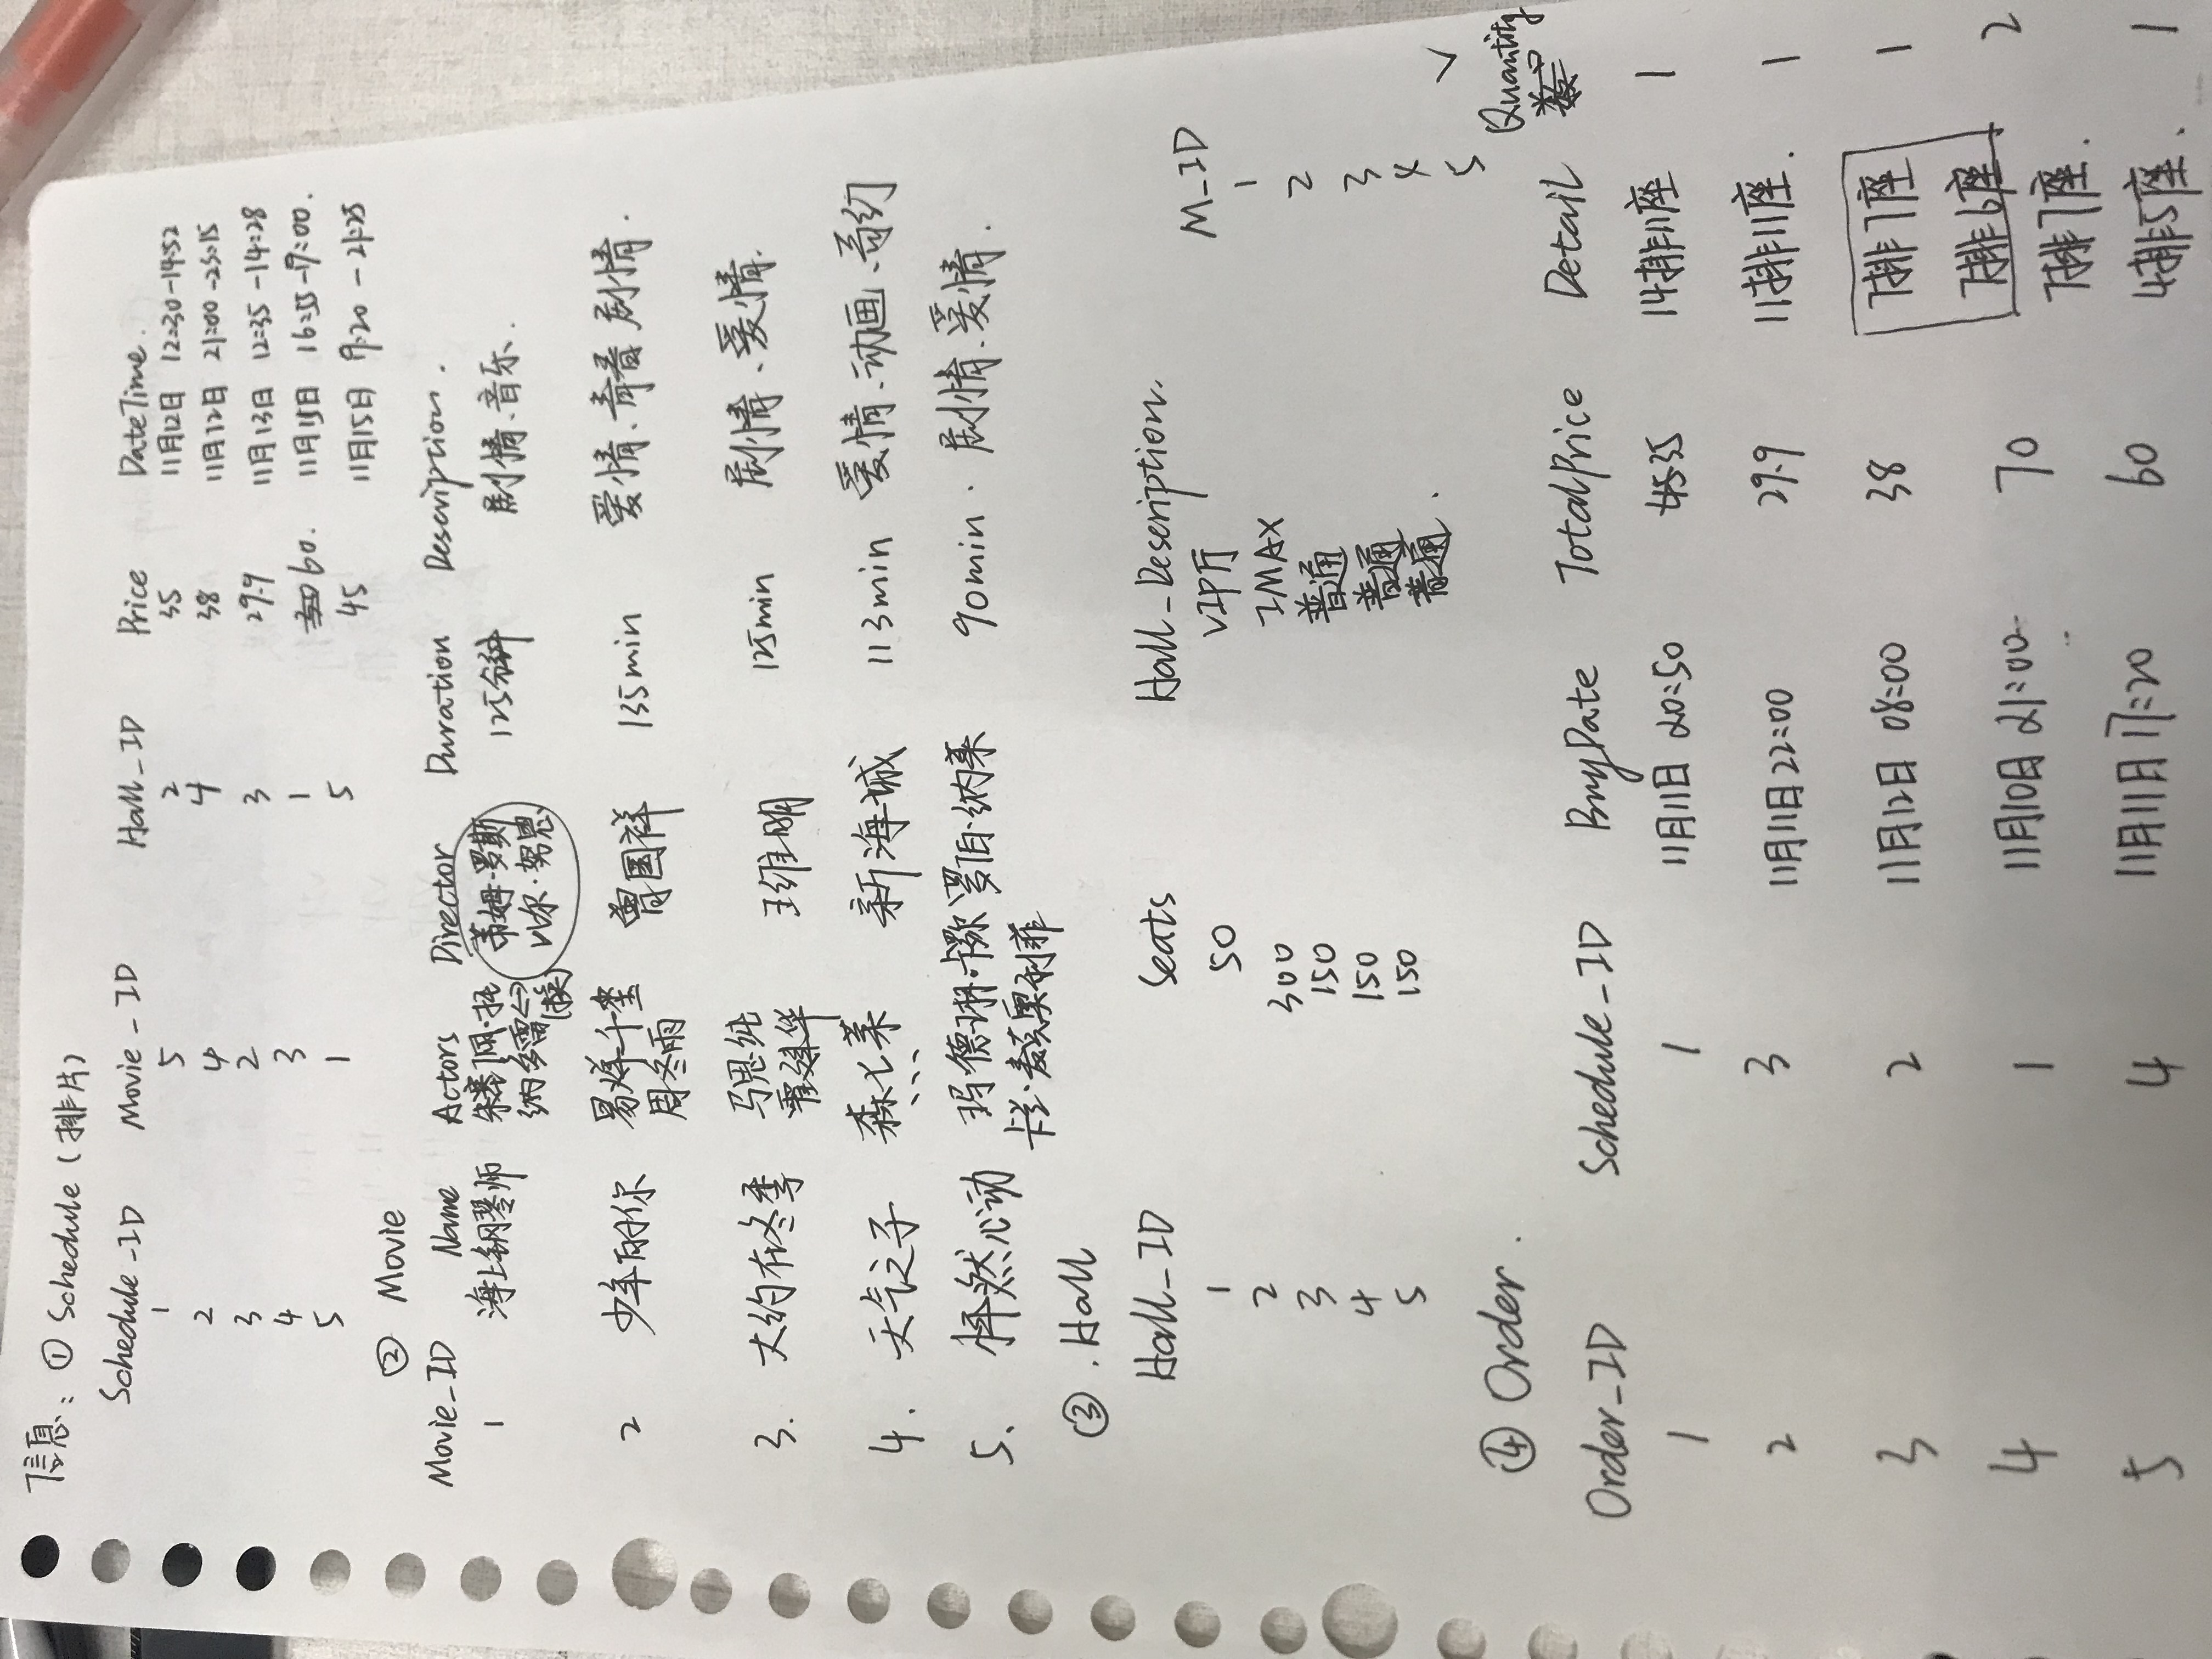 信息：① Schedule（排片）
Schedule_ID Movie_ID Hall_ID Price DateTime.
1 5 2 35 11月12日 12:30-14:52
2 4 4 38 11月12日 21:00-23:15
3 2 3 29.9 11月13日 12:35-14:28
4 3 1 60. 11月15日 16:55-19:00.
5 1 5 45 11月15日 9:20-21:25
② Movie
Movie_ID Name Actors Director Duration Description.
1 海上钢琴师 朱塞佩·托 蒂姆·罗斯 125分钟 剧情、音乐.
纳多雷<-> 比尔·努恩
(换)
2 少年的你 易烊千玺 曾国祥 135min 爱情、青春 剧情.
周冬雨
3. 大约在冬季 马思纯 王维明 125min 剧情、爱情.
霍建华
4. 天气之子 森七菜 新海城 113min 爱情、动画、奇幻
、、、
5、 怦然心动 玛德琳·卡罗尔 罗伯·纳莱 90min. 剧情、爱情.
卡兰·麦克奥利菲
③.Hall
Hall_ID Seats Hall_Description. M_ID
1 50 VIP厅 1
2 300 IMAX 2
3 150 普通 3
4 150 普通 4
5 150 普通. 5
④ Order.
Order_ID Schedule_ID BuyDate TotalPrice Detail Quantity
1 1 11月11日 20:50 35 14排11座 1
2 3 11月11日 22:00 29.9 11排11座. 1
3 2 11月12日 08:00 38 7排7座 1
4 1 11月10日 21:00 70 7排6座 2
7排7座.
5 4 11月11日 17:20 60 4排5座. 1